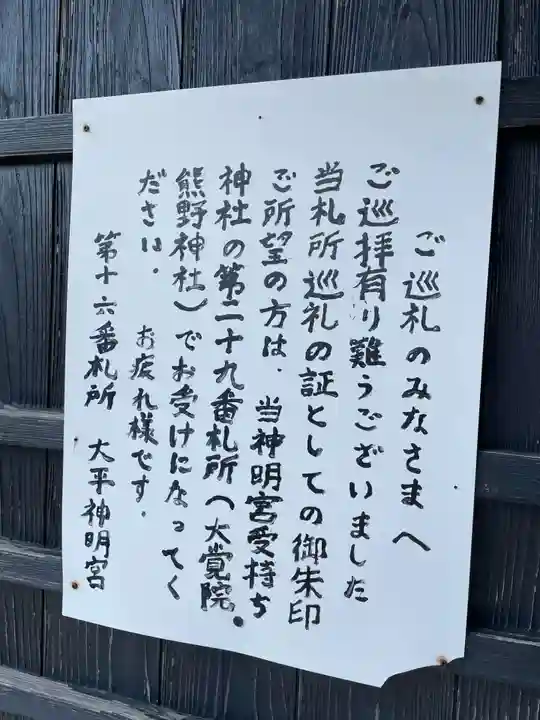 ご巡礼のみなさまへ
ご巡拝有り難うございました
当札所巡礼の証としての御朱印
ご所望の方は、当神明宮受持ち
神社の第二十九番札所(大覚院・
熊野神社)でお受けになってく
ださい。
お疲れ様です。
第十六番札所 大平神明宮